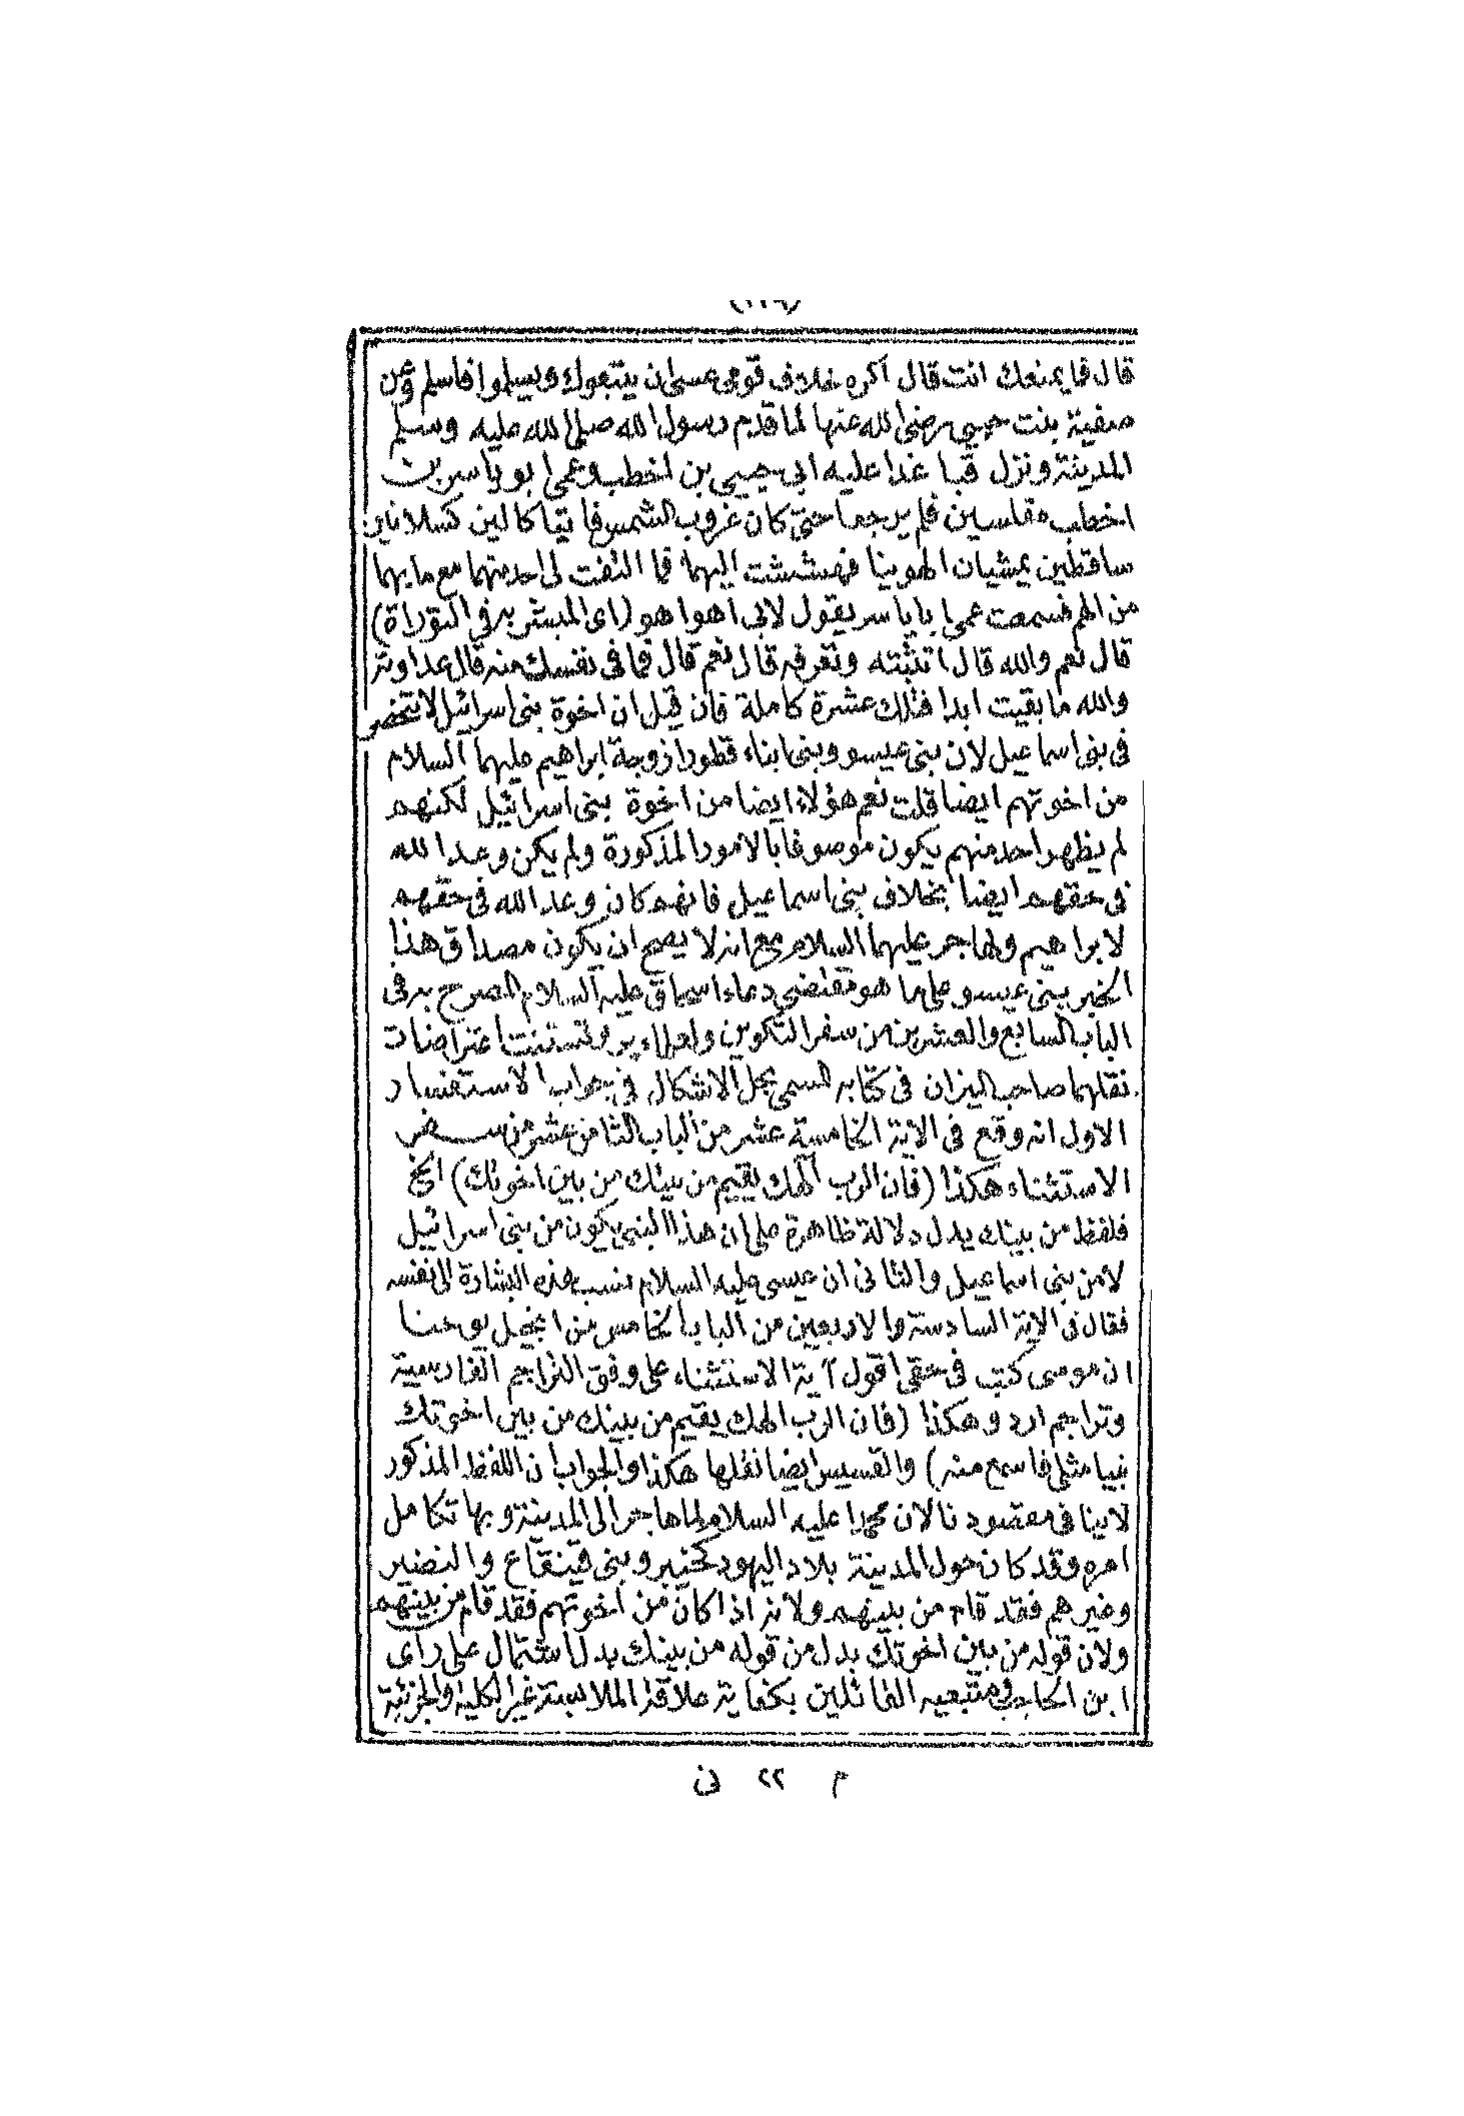 قال فما يمنعك انت قال اكره خلاف قومى عسى ان يتبعوك ويسلموا فاسلم وعن
صفية بنت حيي رضى الله عنها لما قدم رسول الله صلى الله عليه وسلم
المدينة ونزل قبا غدا عليه ابى حيي بن اخطب وعمى ابو ياسر بن
اخطب مغلسين فلم يرجعا حتى كان غروب الشمس فاتيا كالين كسلانين
ساقطين يمشيان الهوينا فهششت اليهما فما التفت الى احد منهما مع ما بهما
من الهم فسمعت عمى ابا ياسر يقول لابى اهو اهو (اى المبشر به فى التوراة)
قال نعم والله قال اتثبته وتعرفه قال نعم قال فما فى نفسك منه قال عداوته
والله ما بقيت ابدا فتلك عشرة كاملة فان قيل ان اخوة بنى اسرائيل لا تنحصر
فى بنى اسماعيل لان بنى عيسو وبنى ابناء قطورا زوجة ابراهيم عليهما السلام
من اخوتهم ايضا قلت نعم هؤلاء ايضا من اخوة بنى اسرائيل لكنهم
لم يظهر احد منهم يكون موصوفا بالامور المذكورة ولم يكن وعد الله
فى حقهم ايضا بخلاف بنى اسماعيل فانهم كان وعد الله فى حقهم
لابراهيم ولهاجر عليهما السلام مع انه لا يصح ان يكون مصداق هذا
الخبر بنى عيسو على ما هو مقتضى دعاء اسحاق عليه السلام المصرح به فى
الباب السابع والعشرين من سفر التكوين ولعلماء پروتستنت اعتراضات
نقلهما صاحب الميزان فى كتابه المسمى بحل الاشكال فى جواب الاستفسار
الاول انه وقع فى الاية الخامسة عشر من الباب الثامن عشر من سفر
الاستثناء هكذا (فان الرب الهك يقيم من بينك من بين اخوتك) الخ
فلفظ من بينك يدل دلالة ظاهرة على ان هذا النبى يكون من بنى اسرائيل
لا من بنى اسماعيل والثانى ان عيسى عليه السلام نسب هذه البشارة الى نفسه
فقال فى الاية السادسة والاربعين من الباب الخامس من انجيل يوحنا
ان موسى كتب فى حقى اقول آية الاستثناء على وفق التراجم الفارسية
وتراجم اردو هكذا (فان الرب الهك يقيم من بينك من بين اخوتك
نبيا مثلى فاسمع منه) والقسيس ايضا نقلها هكذا والجواب ان اللفظ المذكور
لا ينافى مقصودنا لان محمدا عليه السلام لما هاجر الى المدينة وبها تكامل
امره وقد كان حول المدينة بلاد اليهود كخيبر وبنى قينقاع والنضير
وغيرهم فقد قام من بينهم ولانه اذا كان من اخوتهم فقد قام من بينهم
ولان قوله من بين اخوتك بدل من قوله من بينك بدل اشتمال على راى
ابن الحاجب ومتبعيه القائلين بكفاية علاقة الملابسة غير الكلية والجزئية
م ٢٢ ن